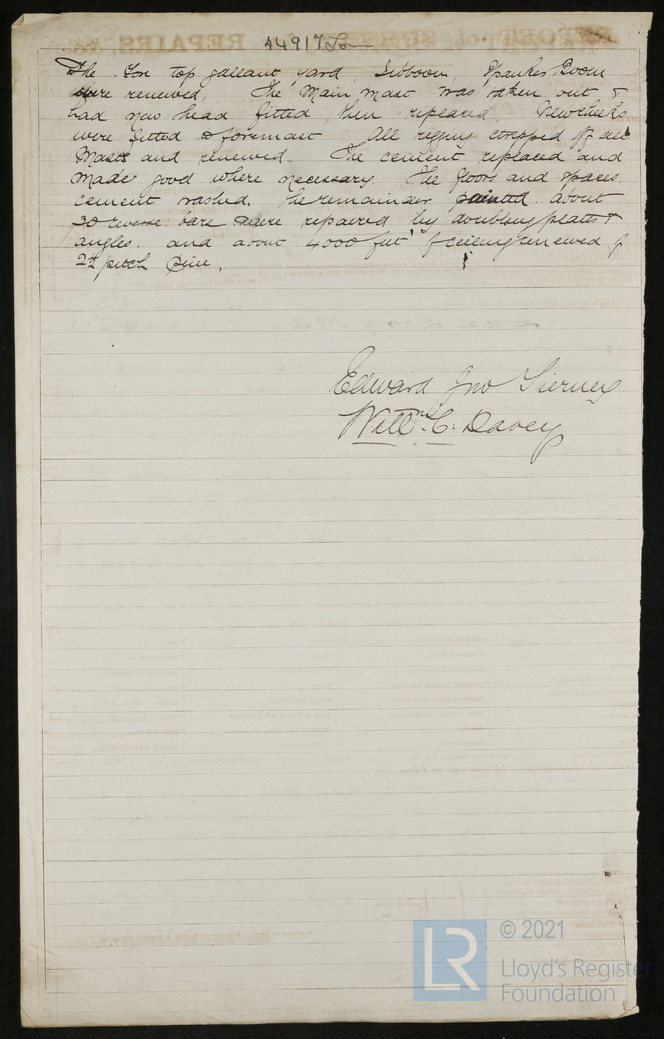 44917 Lo
The Fore top gallant yard, Jibboom, Spanker Boom
were renewed, The Main mast was taken out &
had new head fitted, then replaced, New cheeks
were fitted foremast All rigging stripped off all
Masts and renewed. The cement replaced and
made good where necessary. The floors and spaces
cement washed. The remainder painted. about
30 reverse bars were repaired by doubling plates &
angles. and about 4000 feet of ceiling renewed of
2½ pitch pine.
Edward Jno Tierney
Willm. C. Davey
LR
© 2021
Lloyd's Register
Foundation